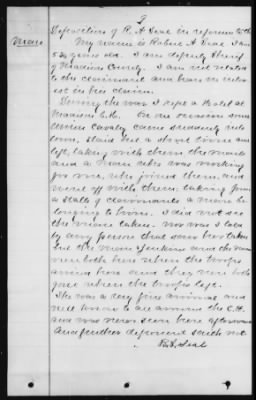 2
Deposition of R. A. Seal in reference to the
Mare
My name is Robert A. Seal. I am
54 years old. I am deputy Sheriff
of Madison County. I am not related
to the claimant and have no inter-
est in his claim.
During the war I kept a Hotel at
Madison C.H. On one occasion some
Union Cavalry came suddenly into
town, staid but a short time and
left, taking with them the
and a man who was working
for me, who joined them, and
went off with them taking from
a stable of claimants a mare be-
longing to him. I did not see
the mare taken. nor was I told
by any person that saw her taken
but the man Jenkins and the mare
were both here when the troops
arrived here and they were both
gone when the troops left.
She was a very fine animal and
well known to all around the C.H.
and was never seen here afterwards
And further deponent saith not
R. A. Seal